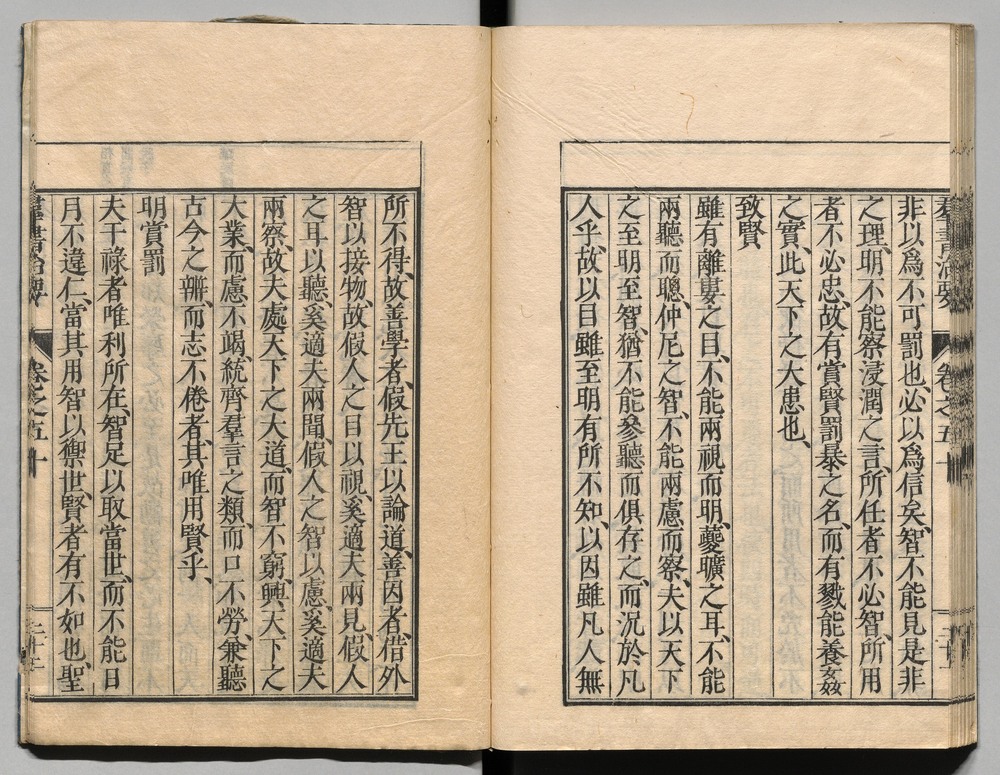 羣書治要 卷之五十
非以爲不可罰也、必以爲信矣、智不能見是非
之理、明不能察浸潤之言、所任者不必智、所用
者不必忠、故有賞賢罰暴之名、而有戮能養姦
之實、此天下之大患也、
致賢
雖有離婁之目、不能兩視而明、夔曠之耳、不能
兩聽而聰、仲尼之智、不能兩慮而察、夫以天下
之至明至智、猶不能參聽而俱存之、而況於凡
人乎、故以目雖至明有所不知、以因雖凡人無
所不得、故善學者、假先王以論道、善因者、借外
智以接物、故假人之目以視、奚適夫兩見、假人
之耳以聽、奚適夫兩聞、假人之智以慮、奚適夫
兩察、故夫處天下之大道、而智不窮、興天下之
大業、而慮不竭、統齊羣言之類、而口不勞、兼聽
古今之辨、而志不倦者、其唯用賢乎、
明賞罰
夫干祿者唯利所在、智足以取當世、而不能日
月不違仁、當其用智以禦世、賢者有不如也、聖
羣書治要 卷之五十 二十二